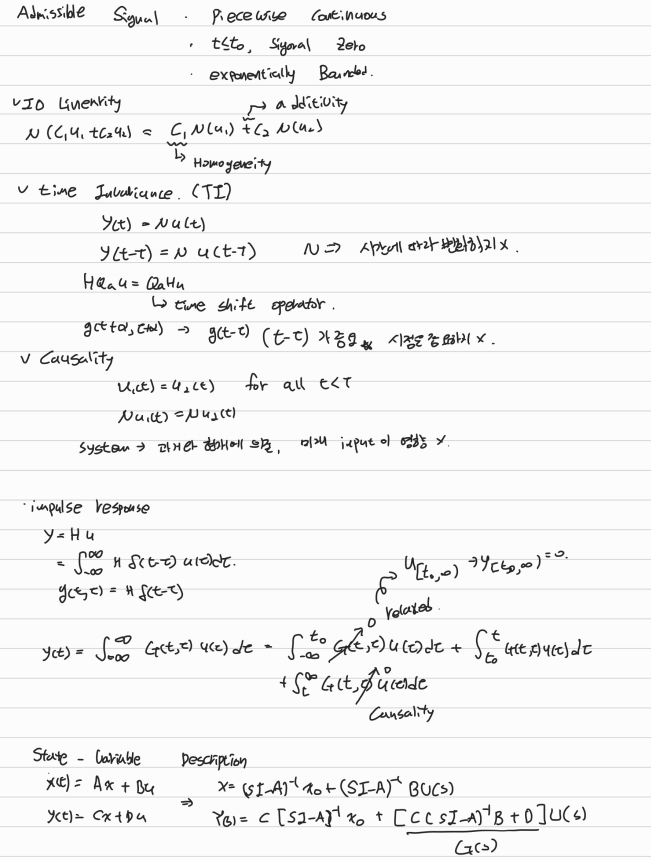 Admissible Signal · Piecewise Continuous
· t≤t₀, Signal Zero
· exponentially Bounded.
∨ IO Linearity
→ additivity
N(C₁u₁ + C₂u₂) = C₁ N(u₁) + C₂ N(u₂)
↳ Homogeneity
∨ time Invariance. (TI)
y(t) = N u(t)
y(t-τ) = N u(t-τ) N ⇒ 시간에 따라 변화하지 X.
HQₐu = QₐHu
↳ time shift operator.
g(t+α, τ+α) → g(t-τ) (t-τ)가 중요 시점은 중요하지 X.
∨ Causality
u₁(t) = u₂(t) for all t<τ
Nu₁(t) = Nu₂(t)
system → 과거와 현재에 의존, 미래 input이 영향 X.
· impulse response
y = Hu
= ∫_{-∞}^{∞} H δ(t-τ) u(τ)dτ.
g(t,τ) = H δ(t-τ)
u[t₀,∞) → y[t₀,∞) = 0.
relaxed.
y(t) = ∫_{-∞}^{∞} G(t,τ) u(τ) dτ = ∫_{-∞}^{t₀} G(t,τ) u(τ) dτ → 0 + ∫_{t₀}^{t} G(t,τ) u(τ) dτ
+ ∫_{t}^{∞} G(t,τ) u(τ) dτ → 0
Causality
State - Variable Description
ẋ(t) = Ax + Bu ⇒ X = (SI-A)⁻¹ x₀ + (SI-A)⁻¹ BU(s)
y(t) = Cx + Du Y(s) = C [SI-A]⁻¹ x₀ + [C(SI-A)⁻¹B + D] U(s)
G(s)